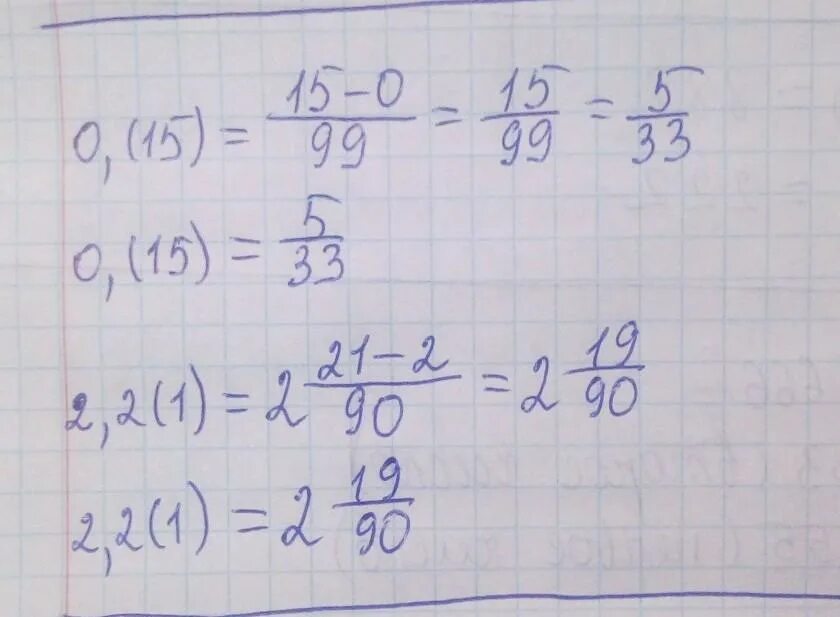 0,(15) = \frac{15-0}{99} = \frac{15}{99} = \frac{5}{33}
0,(15) = \frac{5}{33}
2,2(1) = 2 \frac{21-2}{90} = 2 \frac{19}{90}
2,2(1) = 2 \frac{19}{90}